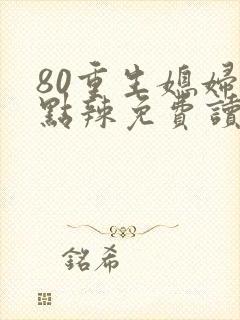 80重生媳婦
點辣免費讀
銘希